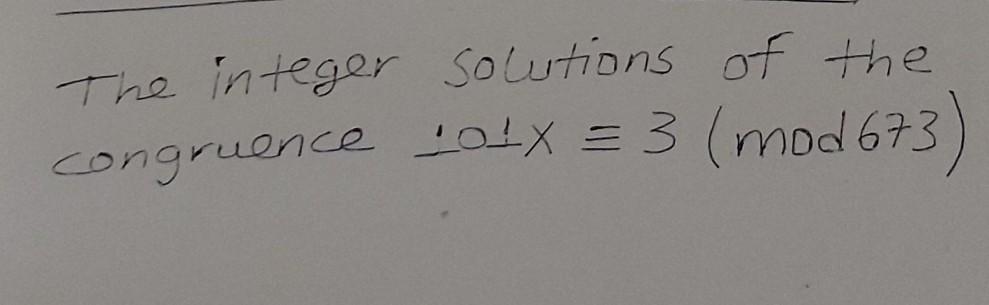 The integer solutions of the
congruence 101x ≡ 3 (mod 673)